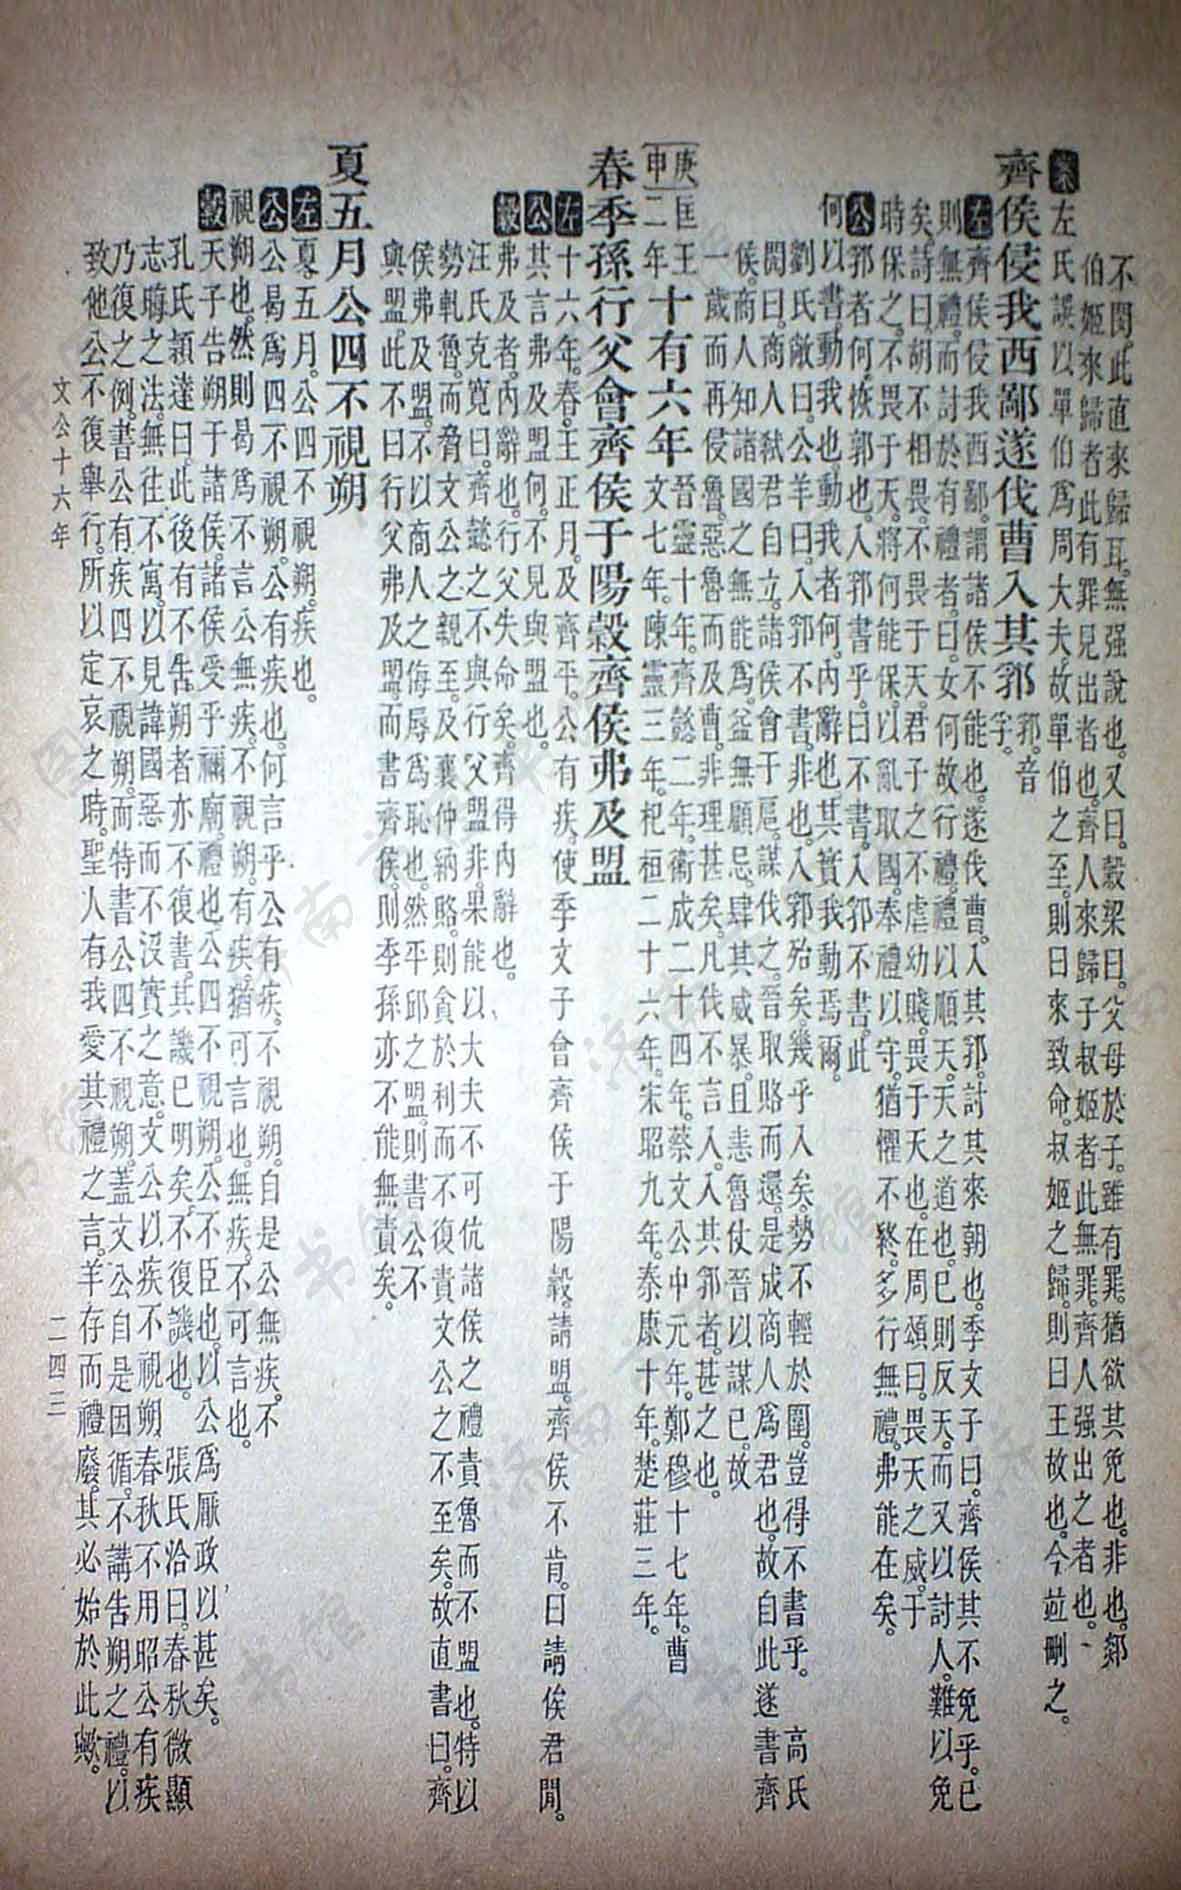 不閔。此直來歸耳。無强說也。又曰。穀梁曰。父母於子。雖有罪。猶欲其免也。非也。郯
伯姬來歸者。此有罪見出者也。齊人來歸子叔姬者。此無罪。齊人强出之者也。
案左氏誤以單伯爲周大夫。故單伯之至。則曰來致命。叔姬之歸。則曰王故也。今並刪之。
齊侯侵我西鄙遂伐曹入其郛 郛。音孚。
左齊侯侵我西鄙。謂諸侯不能也。遂伐曹。入其郛。討其來朝也。季文子曰。齊侯其不免乎。己
則無禮。而討於有禮者。曰。女何故行禮。禮以順天。天之道也。己則反天。而又以討人。難以免
矣。詩曰。胡不相畏。不畏于天。君子之不虐幼賤。畏于天也。在周頌曰。畏天之威。于
時保之。不畏于天。將何能保。以亂取國。奉禮以守。猶懼不終。多行無禮。弗能在矣。
公郛者何。恢郭也。入郛書乎。曰不書。入郛不書。此
何以書。動我也。動我者何。內辭也。其實我動焉爾。
劉氏敞曰。公羊曰。入郛不書。非也。入郛殆矣。幾乎入矣。勢不輕於圍。豈得不書乎。 高氏
閌曰。商人弒君自立。諸侯會于扈。謀伐之。晉取賂而還。是成商人爲君也。故自此遂書齊
侯。商人知諸國之無能爲。益無顧忌。肆其威暴。且恚魯仗晉以謀已。故
一歲而再侵魯。惡魯而及曹。非理甚矣。凡伐不言入。入其郛者。甚之也。
庚申 匡王二年 十有六年 晉靈十年。齊懿二年。衞成二十四年。蔡文公申元年。鄭穆十七年。曹文七年。陳靈三年。杞桓二十六年。宋昭九年。秦康十年。楚莊三年。
春季孫行父會齊侯于陽穀齊侯弗及盟
左十六年。春。王正月。及齊平。公有疾。使季文子會齊侯于陽穀。請盟。齊侯不肯。曰請俟君閒。
公其言弗及盟何。不見與盟也。
穀弗及者。內辭也。行父失命矣。齊得內辭也。
汪氏克寬曰。齊懿之不與行父盟。非果能以大夫不可伉諸侯之禮責魯而不盟也。特以
勢軋魯。而脅文公之親至。及襄仲納賂。則貪於利而不復責文公之不至矣。故直書曰。齊
侯弗及盟。不以商人之侮辱爲恥也。然平邱之盟。則書公不
與盟。此不曰行父弗及盟。而書齊侯。則季孫亦不能無責矣。
夏五月公四不視朔
左夏五月。公四不視朔。疾也。
公公曷爲四不視朔。公有疾也。何言乎公有疾。不視朔。自是公無疾。不
視朔也。然則曷爲不言公無疾。不視朔。有疾猶可言也。無疾。不可言也。
穀天子告朔于諸侯。諸侯受乎禰廟。禮也。公四不視朔。公不臣也。以公爲厭政以甚矣。
孔氏穎達曰。此後有不告朔者。亦不復書。其譏已明矣。不復譏也。 張氏洽曰。春秋微顯
志晦之法。無往不寓。以見諱國惡而不沒實之意。文公以疾不視朔。春秋不用昭公有疾
乃復之例。書公有疾四不視朔。而特書公四不視朔。蓋文公自是因循。不講告朔之禮。以
致他公不復舉行。所以定哀之時。聖人有我愛其禮之言。羊存而禮廢。其必始於此歟。
文公十六年
二四三